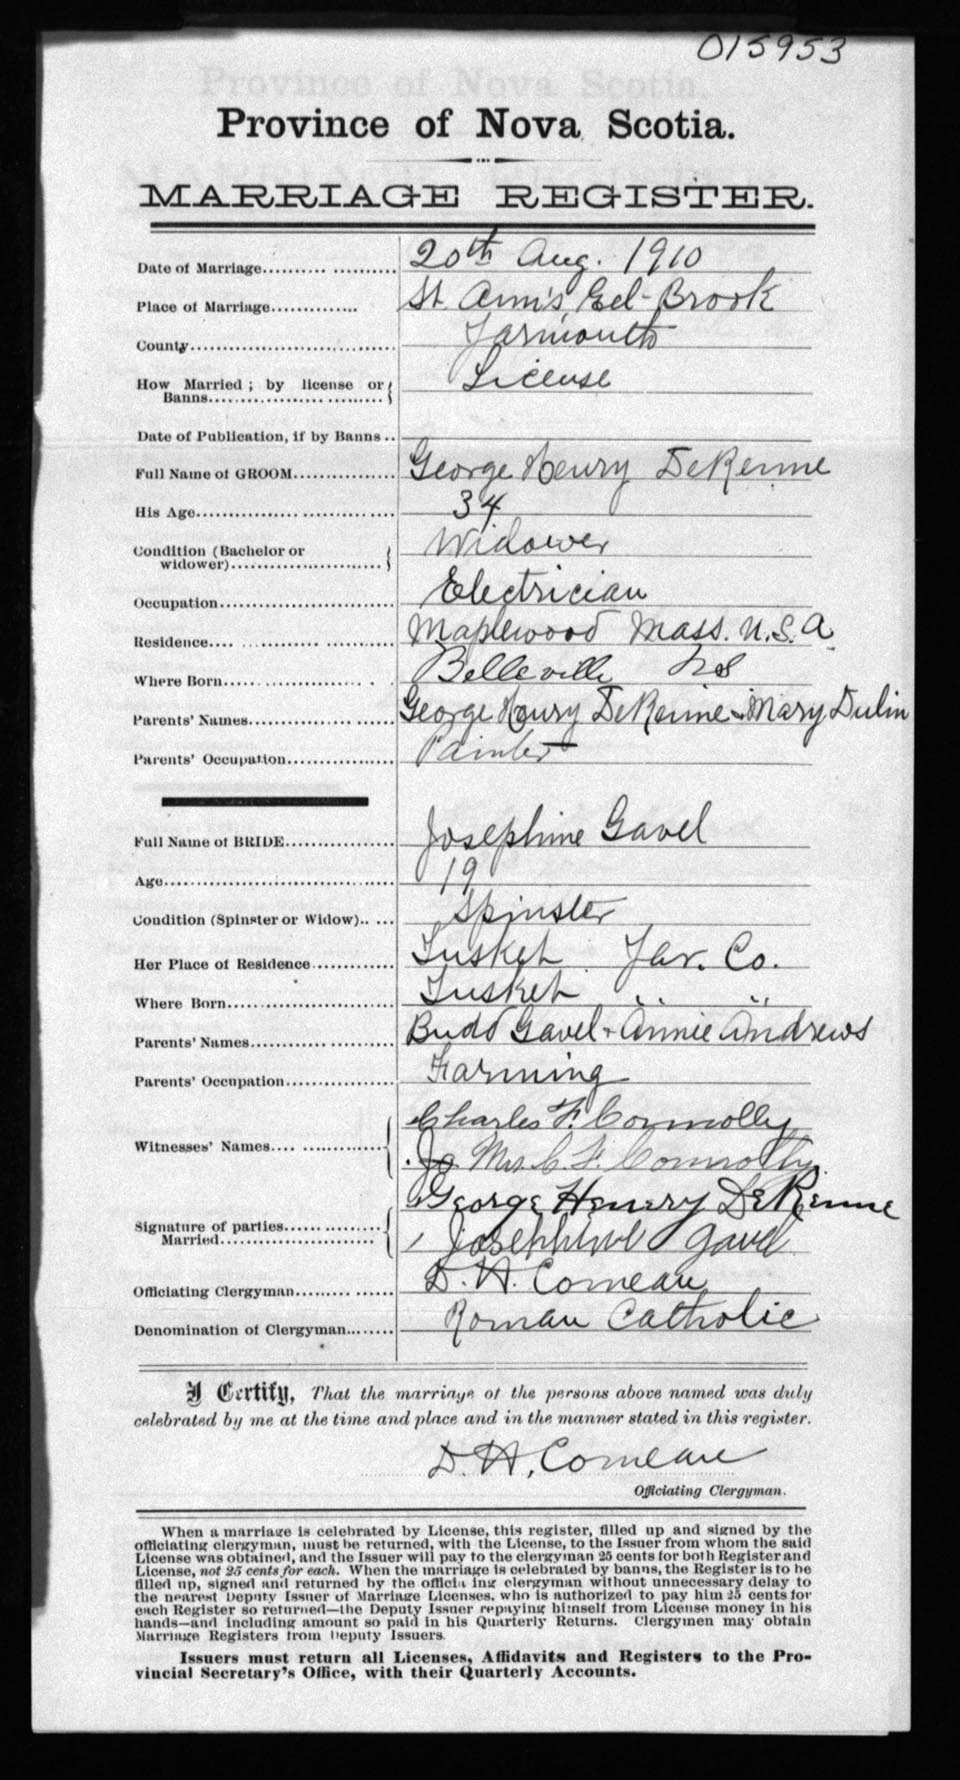 015953
Province of Nova Scotia.
MARRIAGE REGISTER.
Date of Marriage 20th Aug. 1910
Place of Marriage St. Ann's Eel-Brook
County Yarmouth
How Married ; by license or Banns License
Date of Publication, if by Banns
Full Name of GROOM George Henry DeRenne
His Age 34
Condition (Bachelor or widower) Widower
Occupation Electrician
Residence Maplewood Mass. U.S.A.
Where Born Belleville NS
Parents' Names George Henry DeRenne & Mary Dulin
Parents' Occupation Painter
Full Name of BRIDE Josephine Gavel
Age 19
Condition (Spinster or Widow) Spinster
Her Place of Residence Tusket Yar. Co.
Where Born Tusket " "
Parents' Names Budd Gavel + Annie Andrews
Parents' Occupation Farming
Witnesses' Names Charles F. Connolly
Mrs. C. F. Connolly
Signature of parties Married George Henery DeRenne
Josephine Gavel
Officiating Clergyman D. H. Comeau
Denomination of Clergyman Roman Catholic
I Certify, That the marriage of the persons above named was duly
celebrated by me at the time and place and in the manner stated in this register.
D. H. Comeau
Officiating Clergyman.
When a marriage is celebrated by License, this register, filled up and signed by the
officiating clergyman, must be returned, with the License, to the Issuer from whom the said
License was obtained, and the Issuer will pay to the clergyman 25 cents for both Register and
License, not 25 cents for each. When the marriage is celebrated by banns, the Register is to be
filled up, signed and returned by the officiating clergyman without unnecessary delay to
the nearest Deputy Issuer of Marriage Licenses, who is authorized to pay him 25 cents for
each Register so returned—the Deputy Issuer repaying himself from License money in his
hands—and including amount so paid in his Quarterly Returns. Clergymen may obtain
Marriage Registers from Deputy Issuers.
Issuers must return all Licenses, Affidavits and Registers to the Pro-
vincial Secretary's Office, with their Quarterly Accounts.